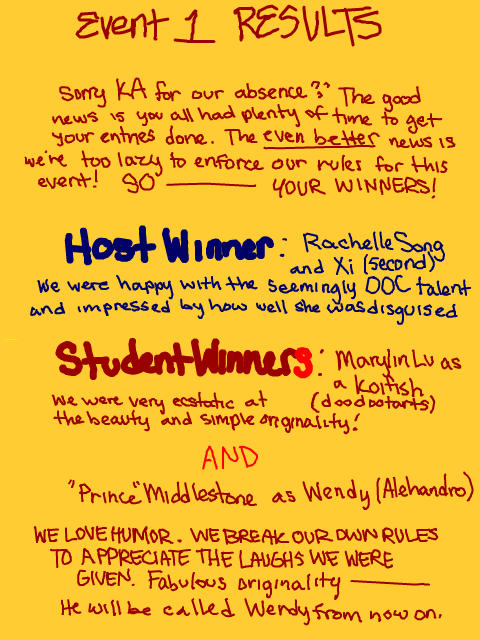 Event 1 RESULTS
Sorry KA for our absence?? The good
news is you all had plenty of time to get
your entries done. The even better news is
we're too lazy to enforce our rules for this
event! SO — YOUR WINNERS!
Host Winner: Rachelle Song
and Xi (second)
We were happy with the seemingly OOC talent
and impressed by how well she was disguised
Student Winners: Marylin Lu as
a Koifish
(doodootarts)
We were very ecstatic at
the beauty and simple originality!
AND
"Prince" Middlestone as Wendy (Alehandro)
WE LOVE HUMOR. WE BREAK OUR OWN RULES
TO APPRECIATE THE LAUGHS WE WERE
GIVEN. Fabulous originality —
He will be called Wendy from now on.